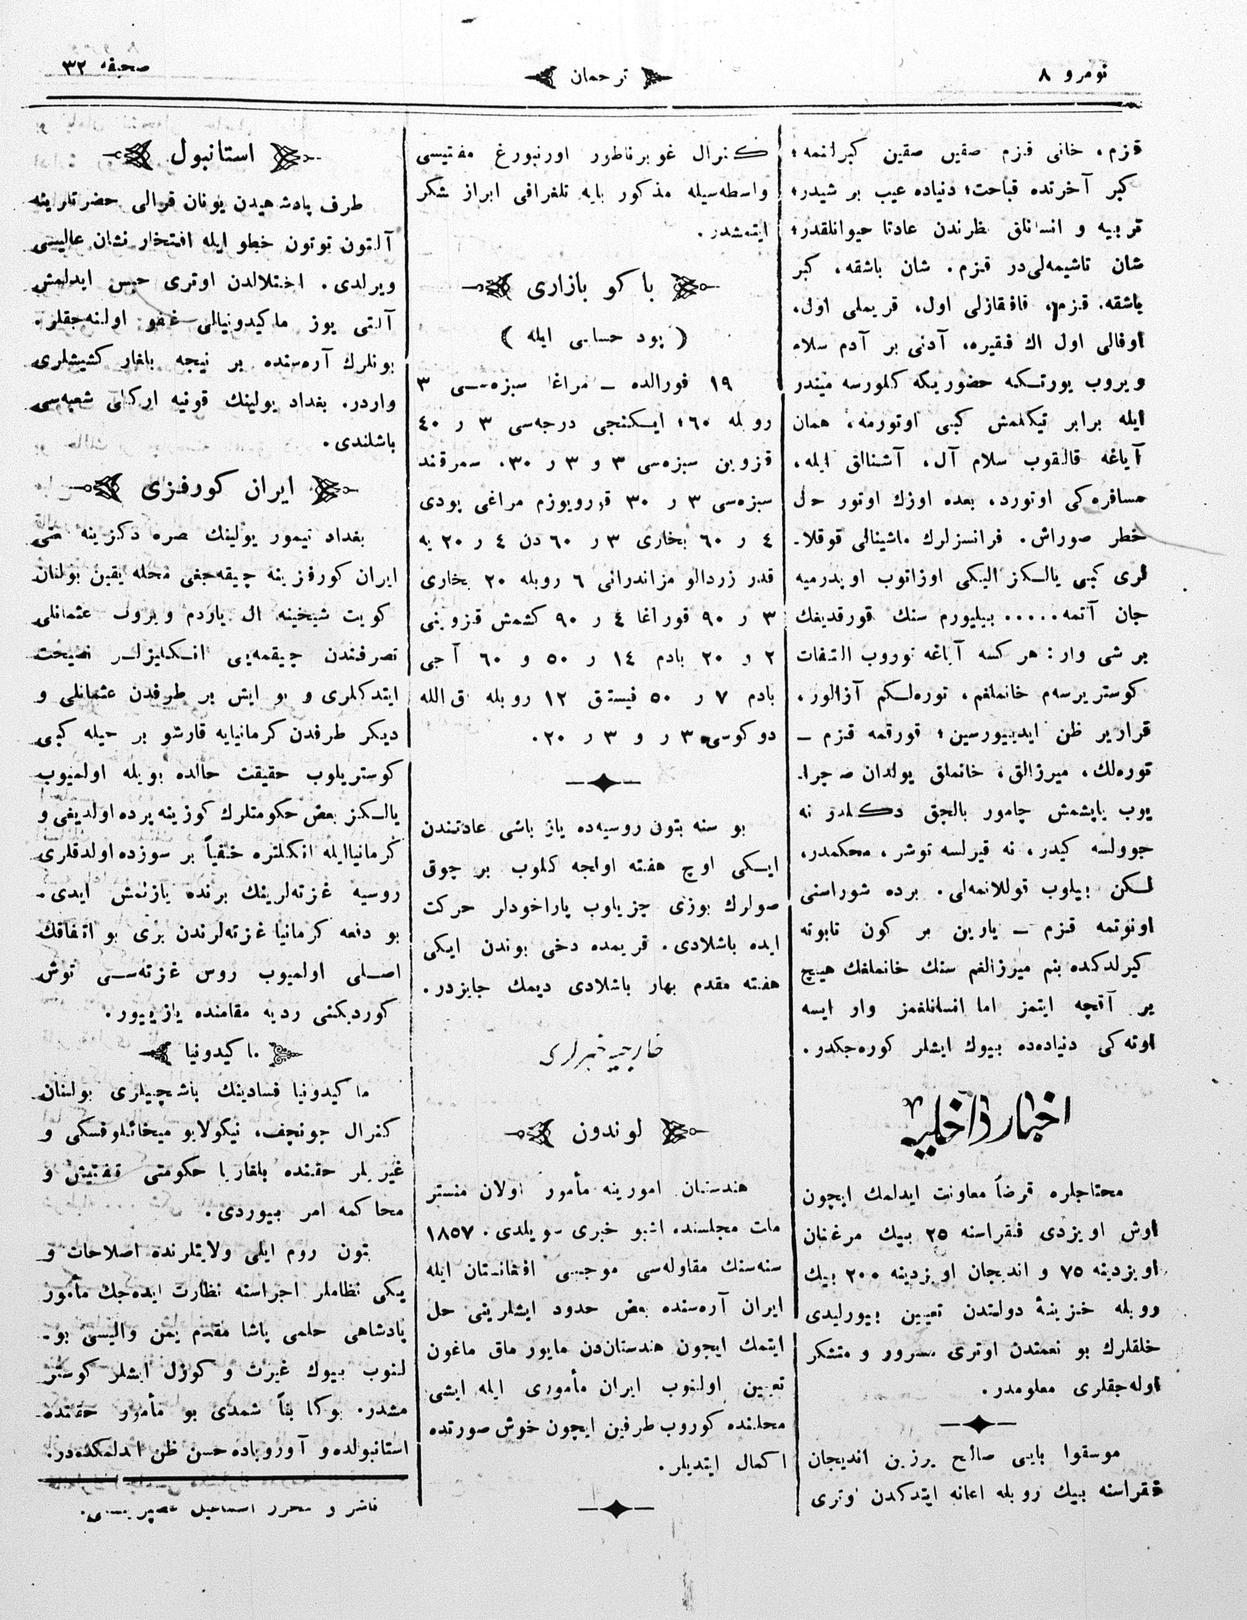 نومرو ٨
ترجمان
صحیفه ٣٢
قزم، خانی قزم صقین صقین کبرلنمه؛
کبر آخرتده قباحت؛ دنیاده عیب بر شیدر؛
تربیه و انسانلق نظرندن عادتا حیوانلقدر؛
شان تاشیمه‌لی‌در قزم. شان باشقه، کبر
باشقه. قزم، قافقازلی اول، قریملی اول،
اوفالی اول اك فقیره، آدنی بر آدم سلام
ویروب یورتكه حضوریكه کلورسه میندر
ایله برابر تیكلمش کبی اوتورمه، همان
آیاغه قالقوب سلام آل، آشنالق ایله،
مسافره‌کی اوتورد، بعده اوزك اوتور حال
خطر صوراش. فرانسزلرك ماشینالی قوقلا-
لری کبی یالكز الیكی اوزاتوب اویدرمیه
جان آتمه..... بیلیورم سنك قورقدیغك
بر شی وار: هر کسه آیاغه توروب التفات
کوستریرسه‌م خانملغم، توره‌لكم آزالور،
قراریر ظن ایدییورسین؛ قورقمه قزم —
توره‌لك، میرزالق، خانملق یولدان صچرا-
یوب یاپشمش چامور بالچق دكلدر نه
جوولسه کیدر، نه قیرلسه توشر، محكمدر،
لكن بیلوب قوللانمه‌لی. برده شوراسنی
اونوتمه قزم — یارین بر کون تابوته
کیرلدكده بنم میرزالغم سنك خانملغك هیچ
بر آقچه ایتمز اما انسانلغمز وار ایسه
اوته‌کی دنیاده‌ده بیوك ایشلر کوره‌جكدر.
اخبار داخلیه
محتاجلره قرضاً معاونت ایدلمك ایچون
اوش اویزدی فقراسنه ٢٥ بیك مرغنان
اویزدینه ٧٥ و اندیجان اویزدینه ٢٠٠ بیك
روبله خزینۀ دولتدن تعیین بیورلیدی
خلقلرك بو نعمتدن اوتری مسرور و متشكر
اوله‌جقلری معلومدر.
موسقوا بایی صالح یرزین اندیجان
فقراسنه بیك روبله اعانه ایتدكدن اوتری
كنرال غوبرناطور اورنبورغ مفتیسی
واسطه‌سیله مذکور بایه تلغرافی ابراز شكر
ایتمشدر.
باکو بازاری
( پود حسابی ایله )
١٩ فورالده — مراغا سبزه‌سی ٣
روبله ٦٠؛ ایكنجی درجه‌سی ٣ ر ٤٠
قزوین سبزه‌سی ٣ و ٣ ر ٣٠. سمرقند
سبزه‌سی ٣ ر ٣٠ قورویوزم مراغی پودی
٤ ر ٦٠ بخاری ٣ ر ٦٠ دن ٤ ر ٢٠ به
قدر زردالو مزاندرانی ٦ روبله ٢٠ بخاری
٣ ر ٩٠ قوراغا ٤ ر ٩٠ کشمش قزوینی
٢ ر ٢٠ بادم ١٤ ر ٥٠ و ٦٠ آجی
بادم ٧ ر ٥٠ فیستق ١٢ روبله ق الله
دوکوسی ٣ ر و ٣ ر ٢٠.
بو سنه بتون روسیه‌ده یاز باشی عادتندن
ایكی اوچ هفته اولجه کلوب بر چوق
صولرك بوزی چزیلوب پاراخودلر حرکت
ایده باشلادی. قریمده دخی بوندن ایكی
هفته مقدم بهار باشلادی دیمك جایزدر.
خارجیه خبرلری
لوندون
هندستان امورینه مأمور اولان منستر
مات مجلسنده اشبو خبری سویلدی. ١٨٥٧
سنه‌سنك مقاوله‌سی موجبی افغانستان ایله
ایران آره‌سنده بعض حدود ایشلرینی حل
ایتمك ایچون هندستان‌دن مایور ماق ماغون
تعیین اولنوب ایران مأموری ایله ایشی
محلنده کوروب طرفین ایچون خوش صورتده
اکمال ایتدیلر.
استانبول
طرف پادشاهیدن یونان قرالی حضرتلرینه
آلتون توتون خطو ایله افتخار نشان عالیسی
ویرلدی. اختلالدن اوتری حبس ایدلمش
آلتی یوز ماکیدونیالی عفو اولنه‌جقلر.
بونلرك آره‌سنده بر نیجه بلغار کشیشلری
واردر. بغداد یولینك قونیه ارکلی شعبه‌سی
باشلندی.
ایران کورفزی
بغداد تیمور یولینك بصره دکزینه حتی
ایران کورفزینه چیقه‌جغی محله یقین بولنان
کویت شیخینه ال یاردم ویروب عثمانلی
تصرفندن چیقمه‌یی انكلیزلر نصیحت
ایتدکلری و بو ایش بر طرفدن عثمانلی و
دیكر طرفدن کرمانیایه قارشو بر حیله کبی
کوستریلوب حقیقت حالده بویله اولمیوب
یالكز بعض حكومتلرك کوزینه پرده اولدیغی و
کرمانیاایله انكلتره خفیاً بر سوزده اولدقلری
روسیه غزته‌لرینك برنده یازلمش ایدی.
بو دفعه کرمانیا غزته‌لرندن بری بو اتفاقك
اصلی اولمیوب روس غزته‌سی توش
کوردیكنی ردیه مقامنده یازییور.
ماکیدونیا
ماکیدونیا فسادینك باشچیلری بولنان
کنرال چونچف، نیكولایو میخائلوفسكی و
غیریلر حقنده بلغاریا حكومتی تفتیش و
محاکمه امر بیوردی.
بتون روم ایلی ولایتلرنده اصلاحات و
یكی نظاملر اجراسنه نظارت ایده‌جك مأمور
پادشاهی حلمی پاشا مقدم یمن والیسی بو-
لنوب بیوك غیرت و کوزل ایشلر کوستر
مشدر. بوکا بناً شمدی بو مأمور حقنده
استانبولده و آوروپاده حسن ظن ایدلمكده‌در.
ناشر و محرر اسماعیل غصپرینسكی.